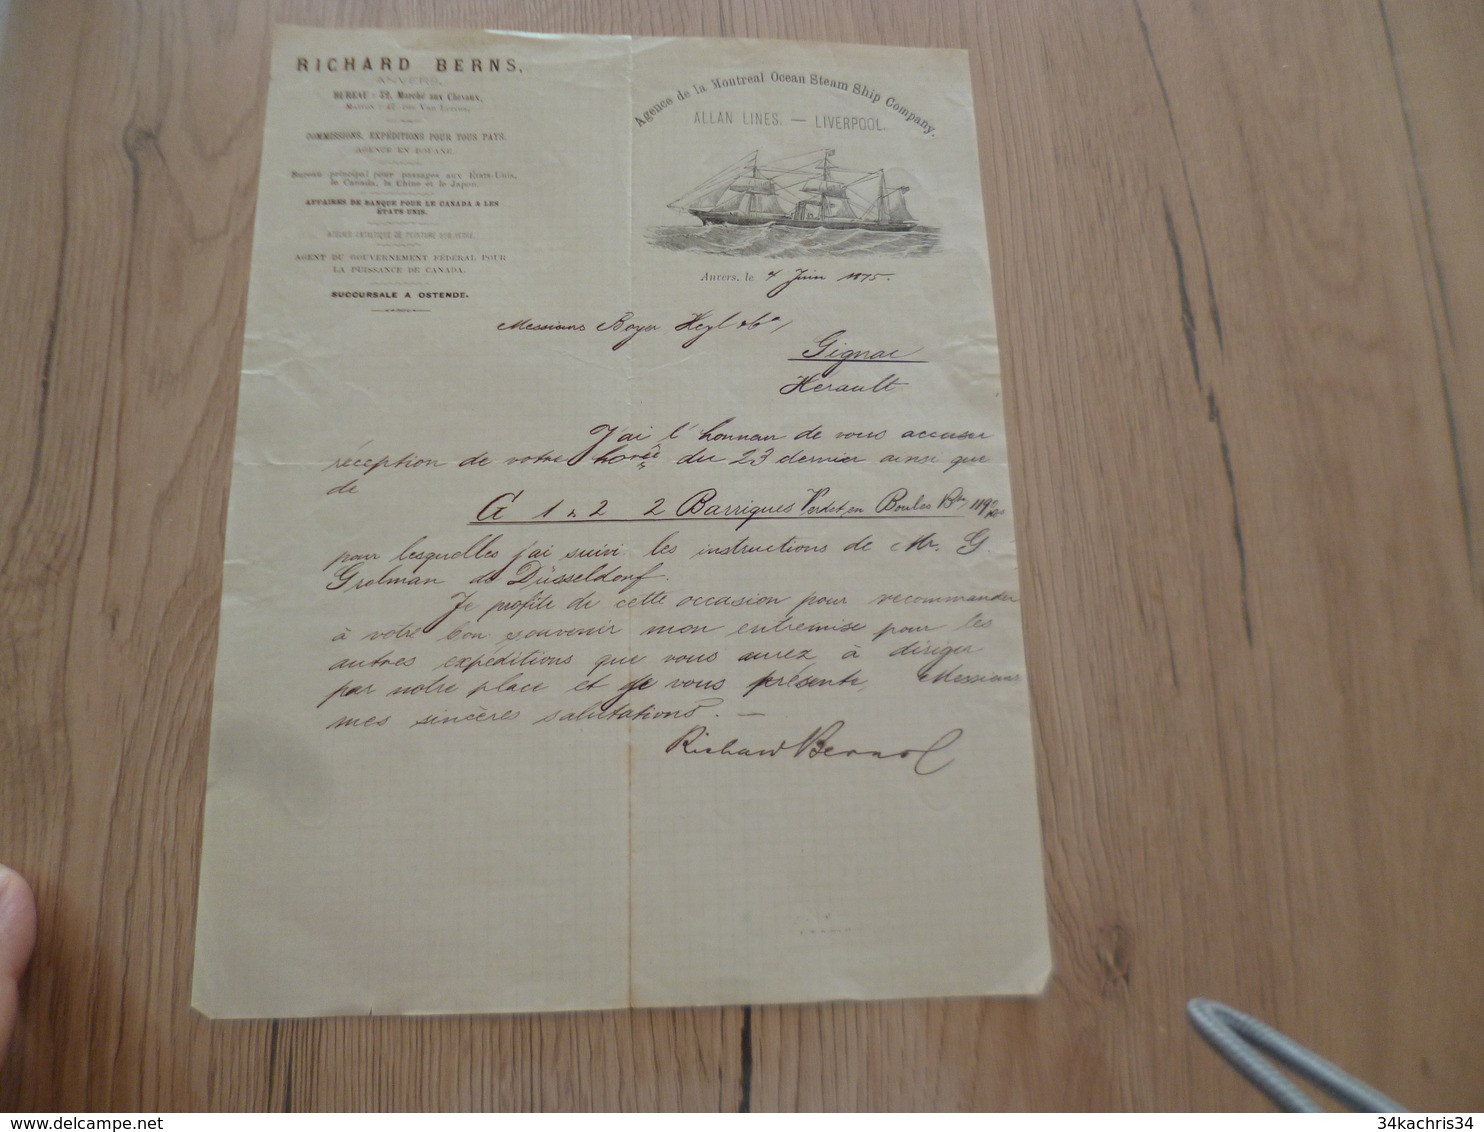 RICHARD BERNS,
ANVERS.
BUREAU : 52, Marché aux Chevaux,
MAISON : 47, rue Van
COMMISSIONS, EXPÉDITIONS POUR TOUS PAYS.
AGENCE EN DOUANE.
Bureau principal pour passages aux États-Unis,
le Canada, la Chine et le Japon.
AFFAIRES DE BANQUE POUR LE CANADA & LES
ÉTATS-UNIS.
AGENT DU GOUVERNEMENT FÉDÉRAL POUR
LA PUISSANCE DE CANADA.
SUCCURSALE A OSTENDE.
Agence de la Montreal Ocean Steam Ship Company.
ALLAN LINES. — LIVERPOOL.
Anvers, le 4 Juin 1875.
Messieurs Boyer Heyl & Co/
Gignac
Herault
J'ai l'honneur de vous accuser
réception de votre honrée du 23 dernier ainsi que
de
G 1 à 2 2 Barriques Verdet en Boules Bto/
pour lesquelles j'ai suivi les instructions de Mr. G.
Grolman de Düsseldorf.
Je profite de cette occasion pour recommander
à votre bon souvenir mon entremise pour les
autres expéditions que vous aurez à diriger
par notre place et je vous présente, Messieurs
mes sincères salutations. —
Richard Berns
34kachris34
delcampe.net
34kachris34